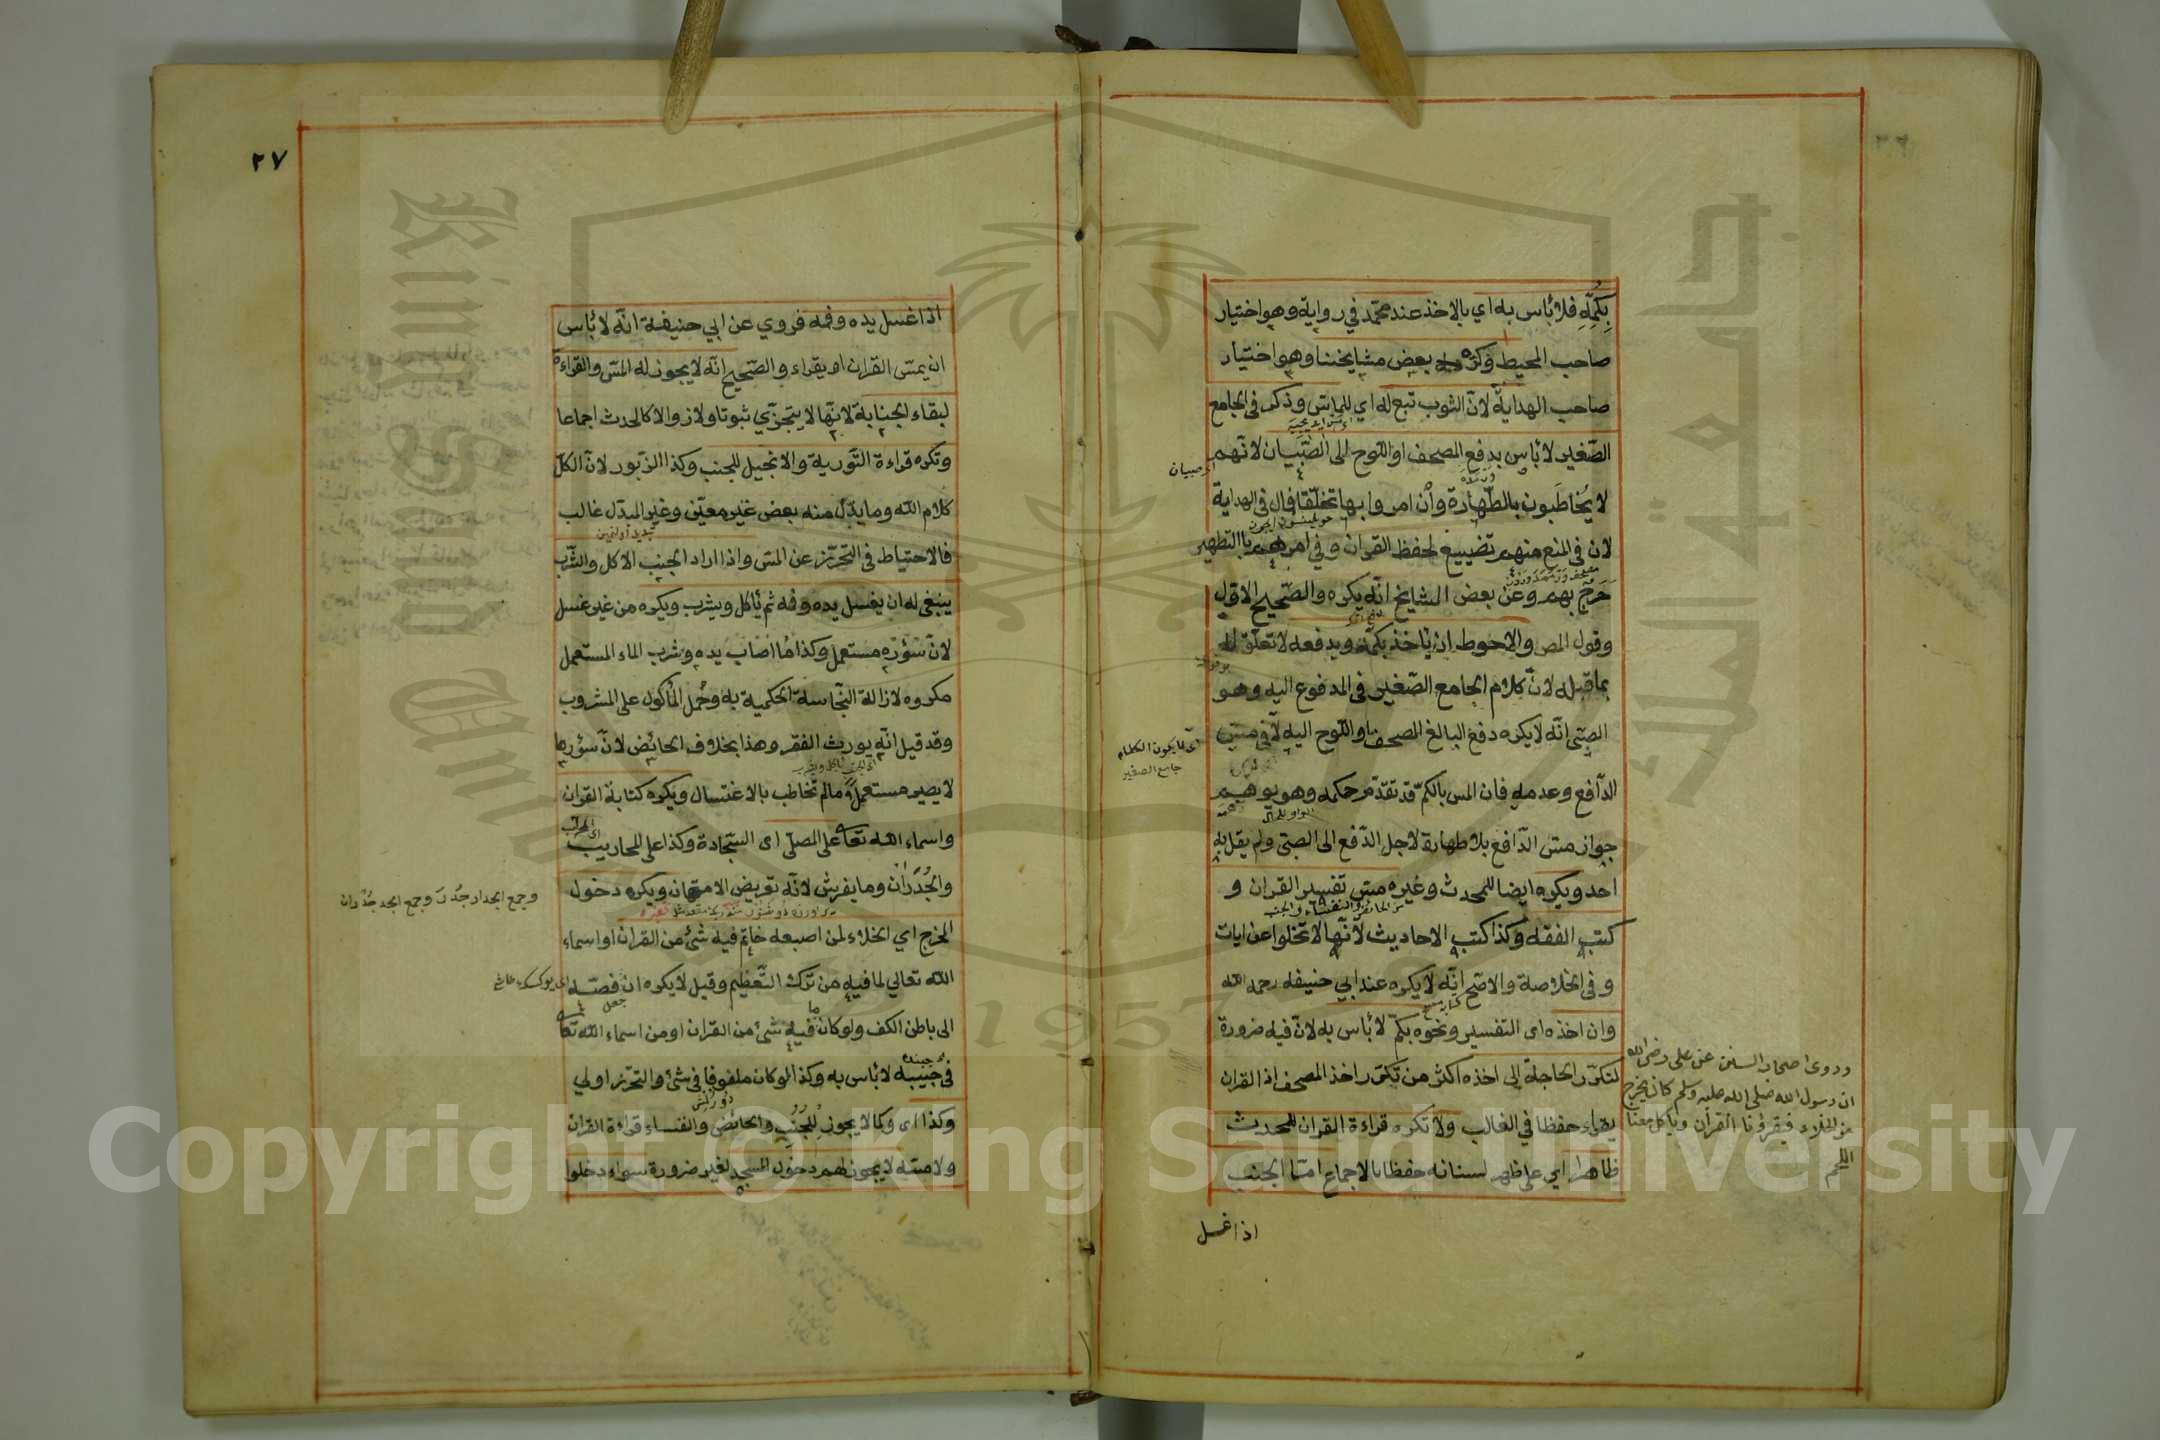 بكمّه فلا بأس به اي بالاخذ عند محمّد في رواية وهو اختيار
صاحب المحيط وكره بعض مشايخنا وهو اختيار
صاحب الهداية لانّ الثوب تبع له اي للماسّ وذكر في الجامع
الصّغير لا بأس بدفع المصحف او اللوح الى الصّبيان لانّهم
لا يخاطبون بالطّهارة وأن امروا بها تخلّقا قال في الهداية
لان في المنع منهم تضييع لحفظ القران وفي امرهم باالتطهير
حرج بهم وعن بعض المشايخ انّه يكره والصّحيح الاوّل
وقول المص والاحوط ان يأخذ بكمّه ويدفعه لا تعلّق له
بما قبله لانّ كلام الجامع الصّغير في المدفوع اليه وهو
الصبّي انّه لا يكره دفع البالغ المصحف او اللوح اليه لا في مسّ
الدّافع وعدمه فان المس بالكمّ قد تقدّم حكمه وهو يوهم
جواز مسّ الدّافع بلا طهارة لاجل الدّفع الى الصبّي ولم يقل به
احد ويكره ايضا للمحدث وغيره مسّ تفسير القران و
كتب الفقه وكذا كتب الاحاديث لانّها لا تخلوا عن ايات
وفي الخلاصة والاصّح انّه لا يكره عند ابي حنيفه رحمه الله
وان اخذه اى التفسير ونحوه بكمّ لا بأس به لانّ فيه ضرورة
لتكرّر الحاجة الى اخذه اكثر من تكرّر اخذ المصحف اذ القران
يقراء حفظا في الغالب ولا تكره قراءة القران للمحدث
ظاهرا اي على ظهر لسانه حفظا بالاجماع امّا الجنب
اذا غسل
اى صبيان
اى لا يكون الكلام
جامع الصغير
وروى اصحاب السنن عن على رضى الله
ان رسول الله صلى الله عليه وسلم كان يخرج
من الخلاء فيقرؤنا القرآن ويأكل معنا
اللحم
٢٧
اذا غسل يده وفمه فروي عن ابي حنيفة انّه لا بأس
ان يمسّ القران او يقراء والصّحيح انّه لا يجوز له المسّ والقراءة
لبقاء الجنابة لانّها لا يتجزّي ثبوتا ولا زوالا كالحدث اجماعا
وتكره قراءة التّورية والانجيل للجنب وكذا الزّبور لانّ الكلّ
كلام الله وما يدّل منه بعض غير معيّن وغير المبدّل غالب
فالاحتياط في التحرّز عن المسّ واذا اراد الجنب الاكل والشّرب
ينبغى له ان يغسل يده وفه ثم يأكل ويشرب ويكره من غير غسل
لانّ سؤره مستعمل وكذا ما اصاب يده وشرب الماء المستعمل
مكروه لازالة النّجاسة الحكمية به وحُمل المأكول على المشروب
وقد قيل انّه يورث الفقر وهذا بخلاف الحائض لانّ سؤرها
لا يصير مستعملا ما لم تخاطب بالاغتسال ويكره كتابة القران
واسماء الله تعا على المصلّى اى السّجادة وكذا على المحاريب
والجُدْران وما يفرش لانّه تعريض الامتهان ويكره دخول
المخرج اي الخلاء لمن اصبعه خاتم فيه شئ من القران او اسماء
الله تعالي لما فيه من ترك التّعظيم وقيل لا يكره ان فصّه
الى باطن الكف ولو كان فيه شئ من القران او من اسماء الله تعا
في جيبه لا بأس به وكذا لو كان ملفوفا في شئ والتحرّز اولي
وكذا اى وكما لا يجوز للجنب والحائض والنفساء قراءة القران
ولا مسّه لا يجوز لهم دخول المسجد لغير ضرورة سواء دخلوا
وجمع الجدار جُدُر وجمع الجدر جُدْران
جعل
King Saud University
1957
Copyright © King Saud University